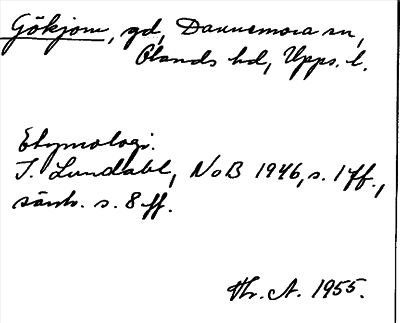 Gökjom, gd, Dannemora sn,
Olands hd, Upps. l.
Etymologi.
I. Lundahl, NoB 1946, s. 1 ff.,
särsk. s. 8 ff.
Thr. A. 1955.